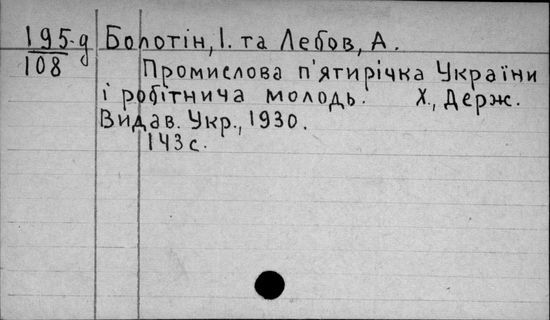 195-д Болотін, І. та Лебов, А.
108 Промислова п'ятирічка України
і робітнича молодь. Х., Держ.
Видав. Укр., 1930.
143 с.